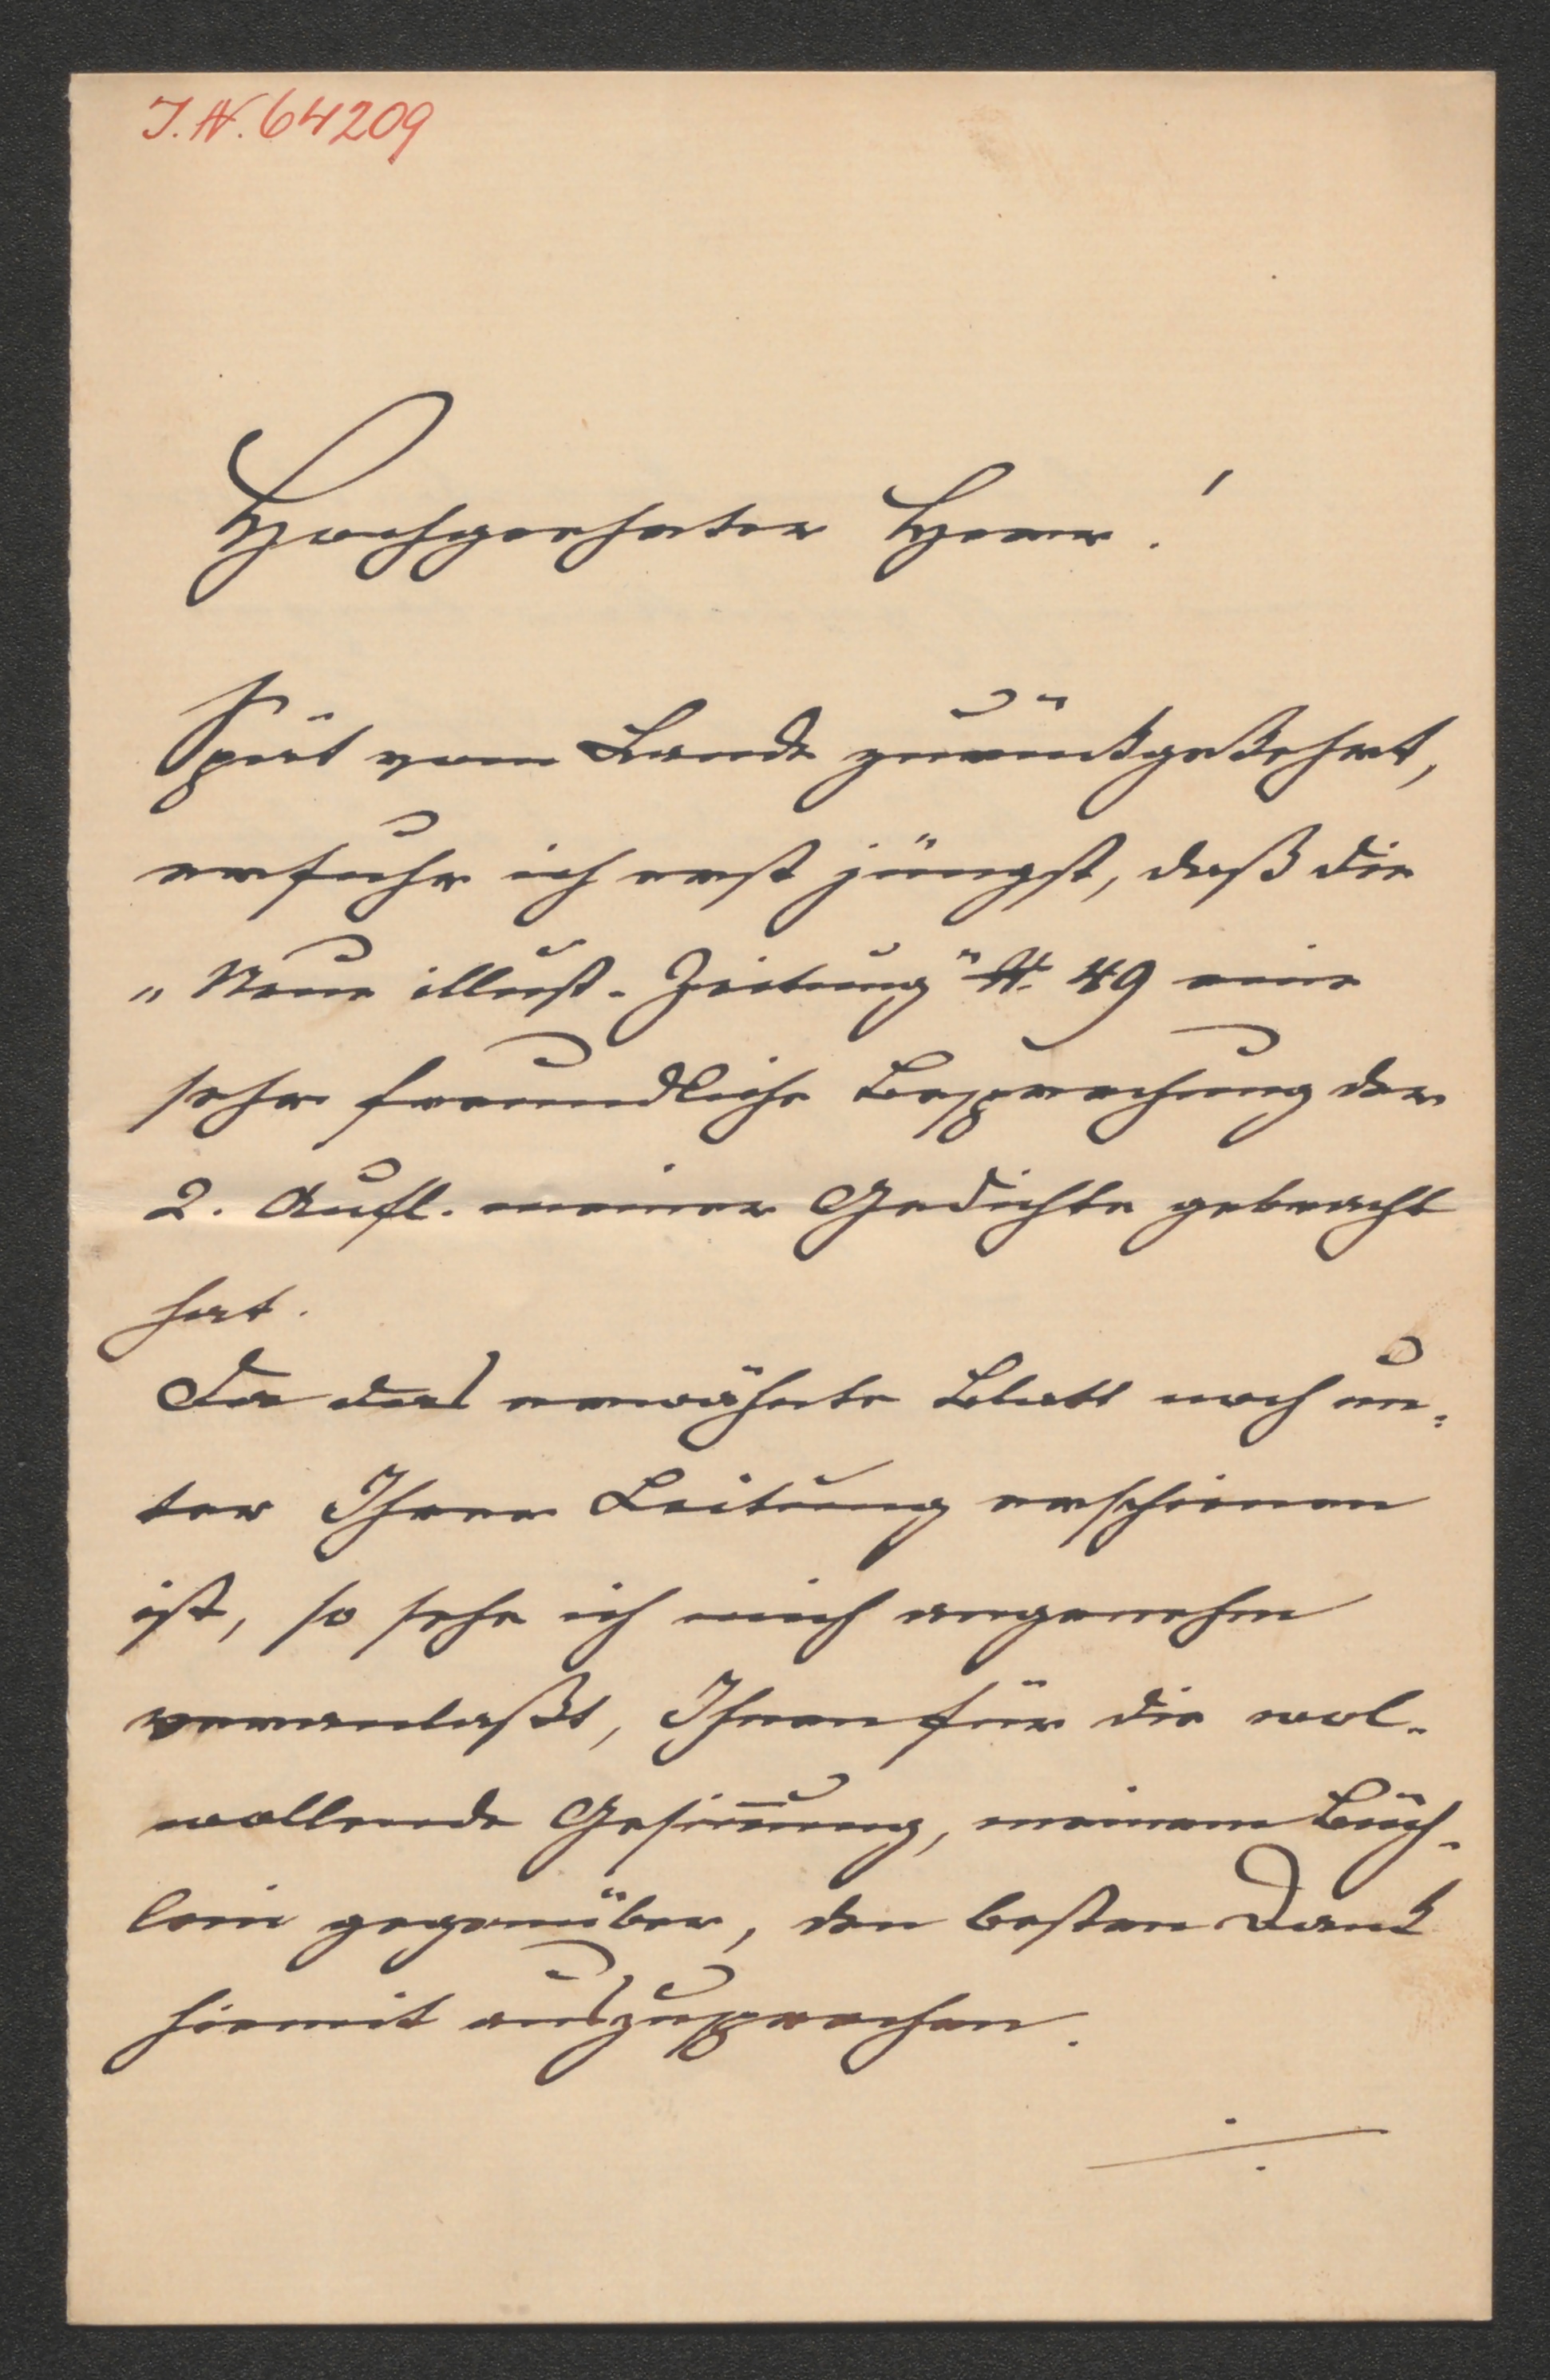 I. N. 64209
Hochgeehrter Herr!
Spät vom Lande zurückgekehrt,
erfuhr ich erst jüngst, daß die
„Neue illust. Zeitung" N. 49 eine
sehr freundliche Besprechung der
2. Aufl. meiner Gedichte gebracht
hat.
Da das erwähnte Blatt noch un-
ter Ihrer Leitung erschienen
ist, so sehe ich mich angenehm
veranlaßt, Ihnen für die wol-
wollende Gesinnung, meinem Büch-
lein gegenüber, den besten Dank
hiemit auszusprechen.